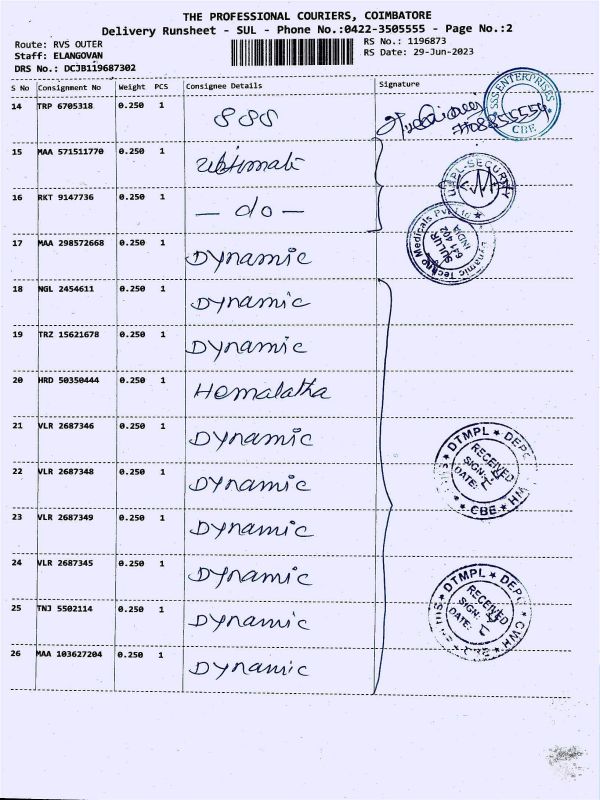 THE PROFESSIONAL COURIERS, COIMBATORE
Delivery Runsheet - SUL - Phone No.:0422-3505555 - Page No.:2
Route: RVS OUTER RS No.: 1196873
Staff: ELANGOVAN RS Date: 29-Jun-2023
DRS No.: DCJB119687302
S No Consignment No Weight PCS Consignee Details Signature
14 TRP 6705318 0.250 1 888
SSS ENTERPRISES
CBE
15 MAA 571511770 0.250 1 Ultimate
UMPL-SECURITY
16 RKT 9147736 0.250 1 - do -
Dynamic Techno Medicals Pvt
SULUR
641 402
INDIA
17 MAA 298572668 0.250 1 Dynamic
18 NGL 2454611 0.250 1 Dynamic
19 TRZ 15621678 0.250 1 Dynamic
20 HRD 50350444 0.250 1 Hemalatha
21 VLR 2687346 0.250 1 Dynamic
DTMPL ★ DEPO
RECEIVED
SIGN:
DATE:
CBE ★ HM
22 VLR 2687348 0.250 1 Dynamic
23 VLR 2687349 0.250 1 Dynamic
24 VLR 2687345 0.250 1 Dynamic
DTMPL ★ DEPO
RECEIVED
SIGN:
DATE:
CBE
25 TNJ 5502114 0.250 1 Dynamic
26 MAA 103627204 0.250 1 Dynamic